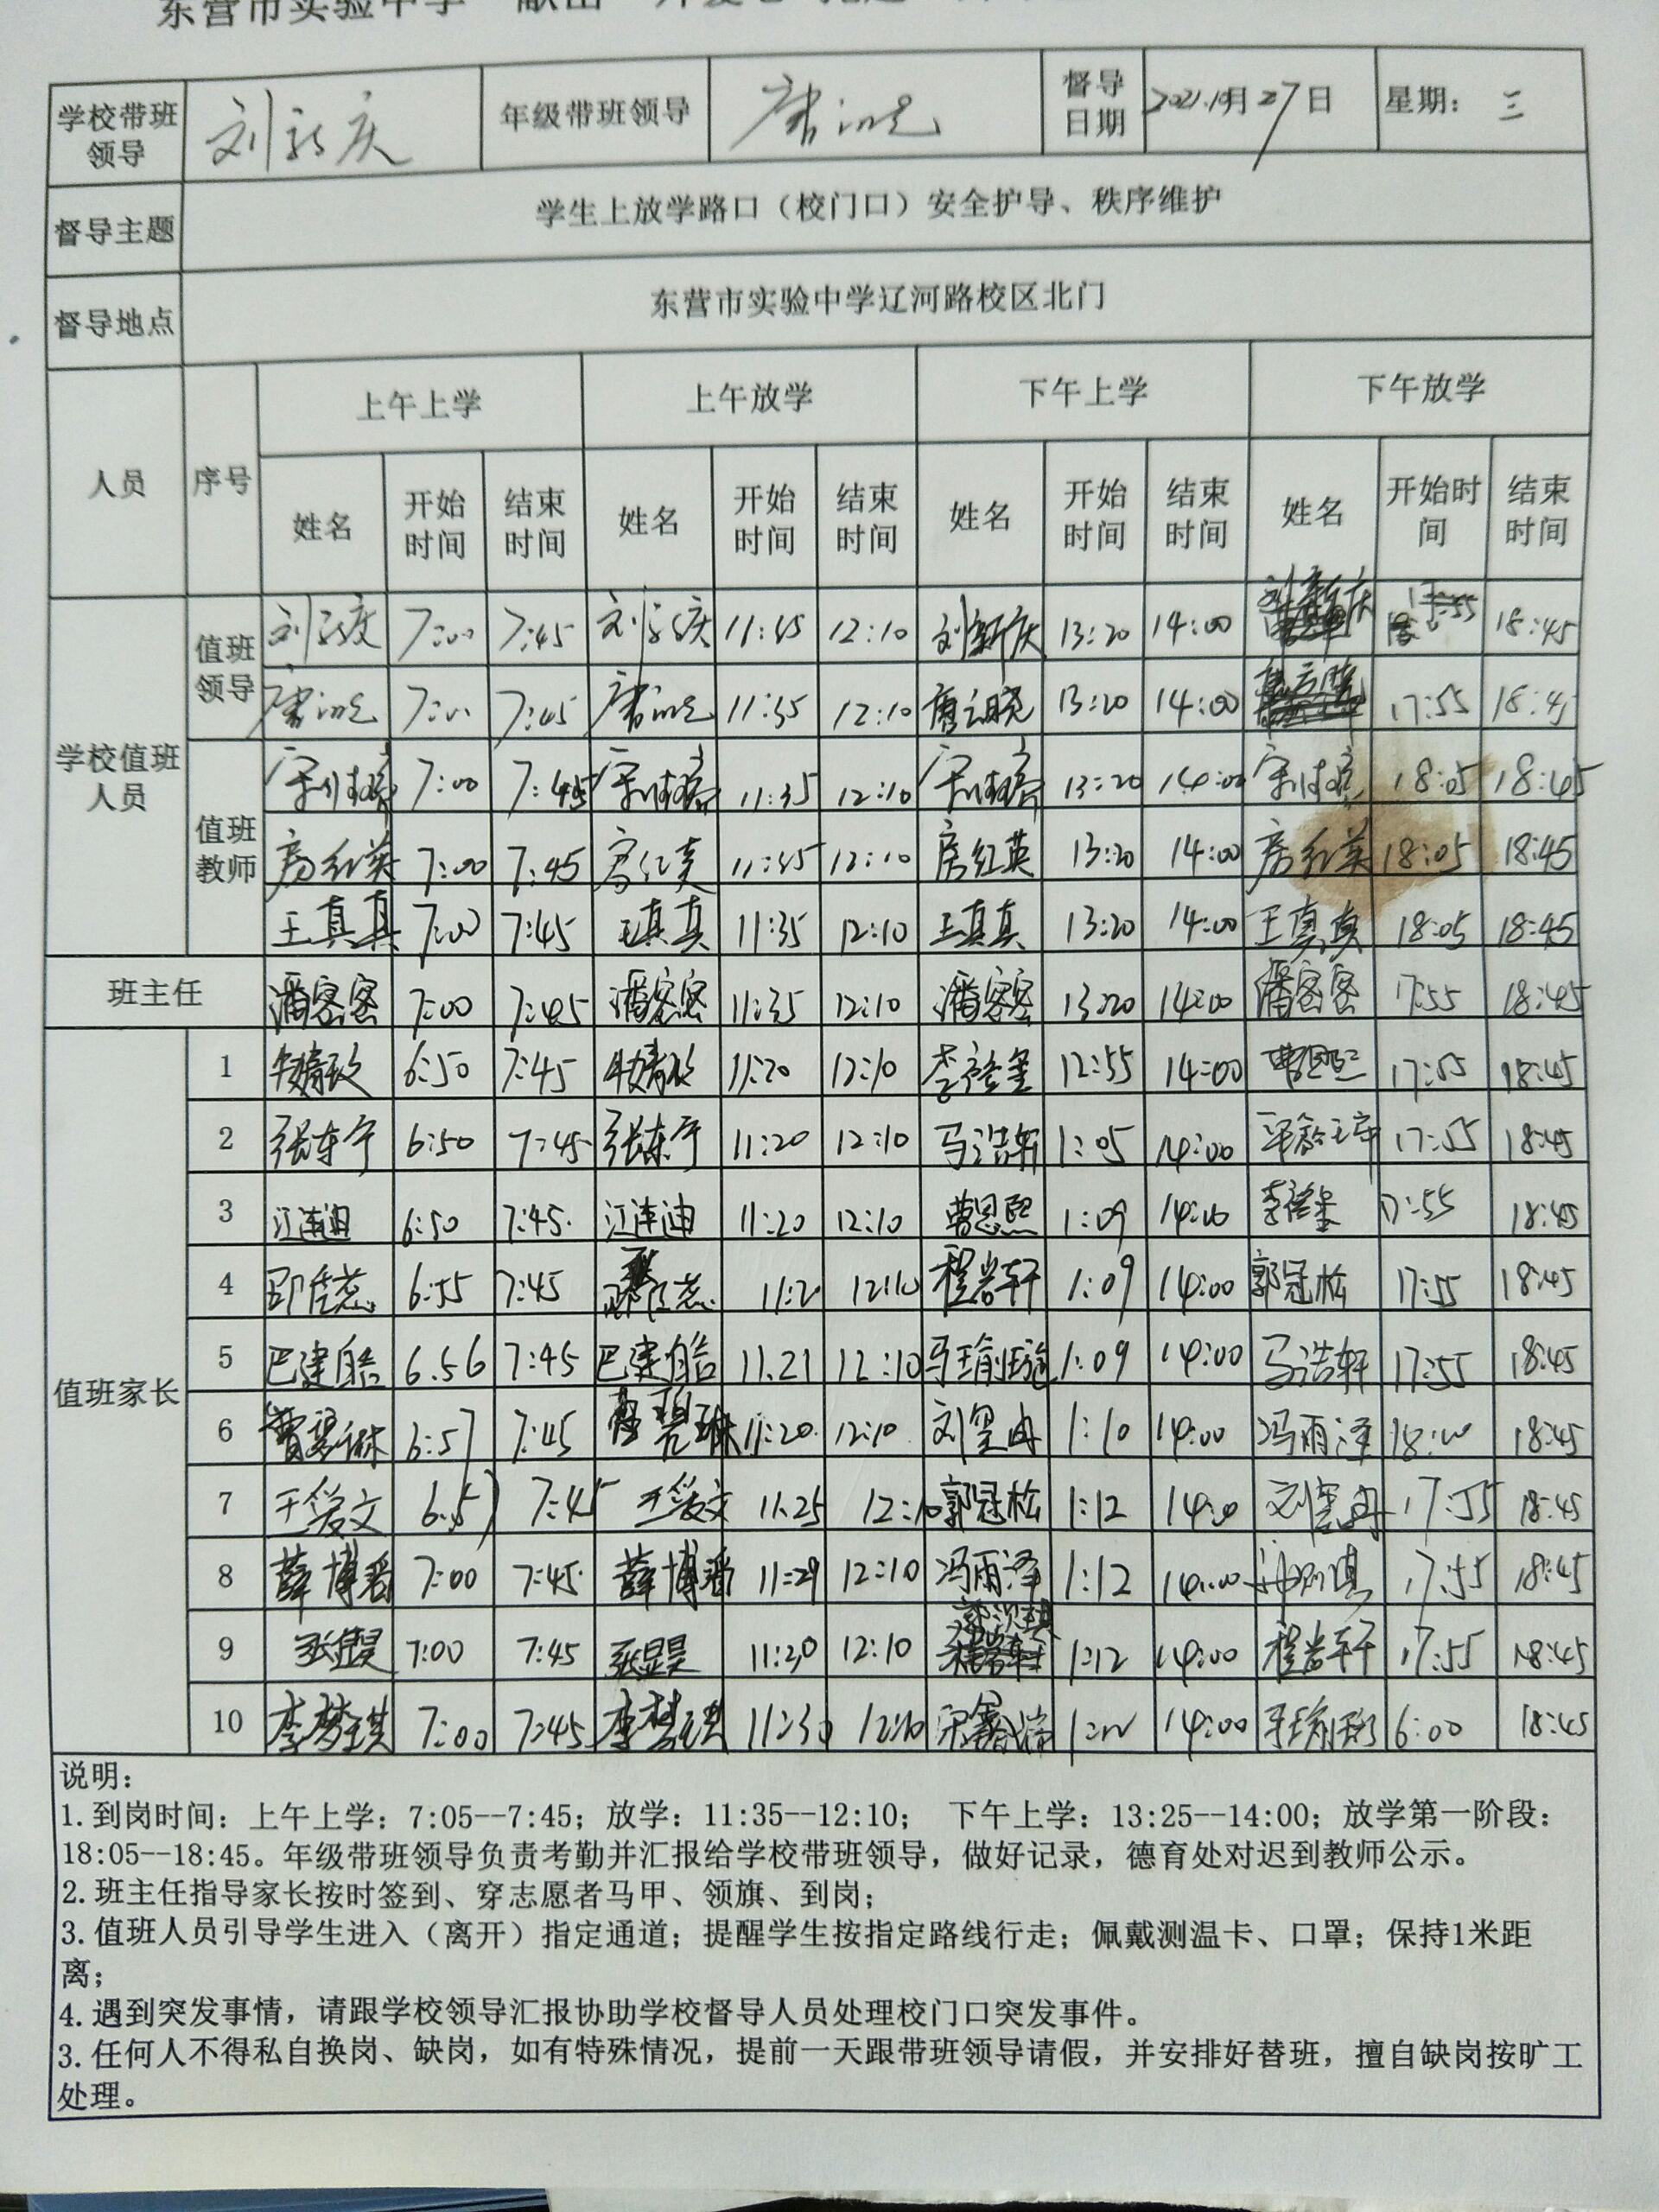 东营市实验中学
学校带班领导 刘新庆 年级带班领导 督导日期 2021.10月27日 星期：三
督导主题 学生上放学路口（校门口）安全护导、秩序维护
督导地点 东营市实验中学辽河路校区北门
人员 序号 上午上学 上午放学 下午上学 下午放学
姓名 开始时间 结束时间 姓名 开始时间 结束时间 姓名 开始时间 结束时间 姓名 开始时间 结束时间
学校值班人员
值班领导 刘新庆 7:00 7:45 刘新庆 11:35 12:10 刘新庆 13:20 14:00 刘新庆 18:45
7:00 7:45 11:35 12:10 唐云晓 13:20 14:00 唐云晓 17:55 18:45
值班教师 7:00 7:45 11:35 12:10 13:20 14:00 18:05 18:45
房红英 7:00 7:45 房红英 11:35 12:10 房红英 13:20 14:00 房红英 18:05 18:45
王真真 7:00 7:45 王真真 11:35 12:10 王真真 13:20 14:00 王真真 18:05 18:45
班主任 潘密密 7:00 7:45 潘密密 11:35 12:10 潘密密 13:20 14:00 潘密密 17:55 18:45
值班家长
1 6:50 7:45 11:20 12:10 12:55 14:00 曹恩熙 17:55 18:45
2 张东宁 6:50 7:45 张东宁 11:20 12:10 马浩轩 1:05 14:00 17:55 18:45
3 江连迪 6:50 7:45 江连迪 11:20 12:10 曹恩熙 1:09 14:00 17:55 18:45
4 6:55 7:45 11:20 12:10 程岩轩 1:09 14:00 郭冠松 17:55 18:45
5 巴建皓 6.56 7:45 巴建皓 11.21 12:10 马瑜璇 1:09 14:00 马浩轩 17:55 18:45
6 6:57 7:45 11:20 12:10 1:10 14:00 冯雨泽 18:00 18:45
7 王爱文 6.57 7:45 王爱文 11:25 12:10 郭冠松 1:12 14:00 17:55 18:45
8 薛博番 7:00 7:45 薛博番 11:29 12:10 冯雨泽 1:12 14:00 17:55 18:45
9 张显昊 7:00 7:45 张显昊 11:30 12:10 1:12 14:00 程岩轩 17:55 18:45
10 李梦琪 7:00 7:45 李梦琪 11:30 12:10 14:00 6:00 18:45
说明：
1.到岗时间：上午上学：7:05--7:45；放学：11:35--12:10； 下午上学：13:25--14:00；放学第一阶段：
18:05--18:45。年级带班领导负责考勤并汇报给学校带班领导，做好记录，德育处对迟到教师公示。
2.班主任指导家长按时签到、穿志愿者马甲、领旗、到岗；
3.值班人员引导学生进入（离开）指定通道；提醒学生按指定路线行走；佩戴测温卡、口罩；保持1米距
离；
4.遇到突发事情，请跟学校领导汇报协助学校督导人员处理校门口突发事件。
3.任何人不得私自换岗、缺岗，如有特殊情况，提前一天跟带班领导请假，并安排好替班，擅自缺岗按旷工
处理。